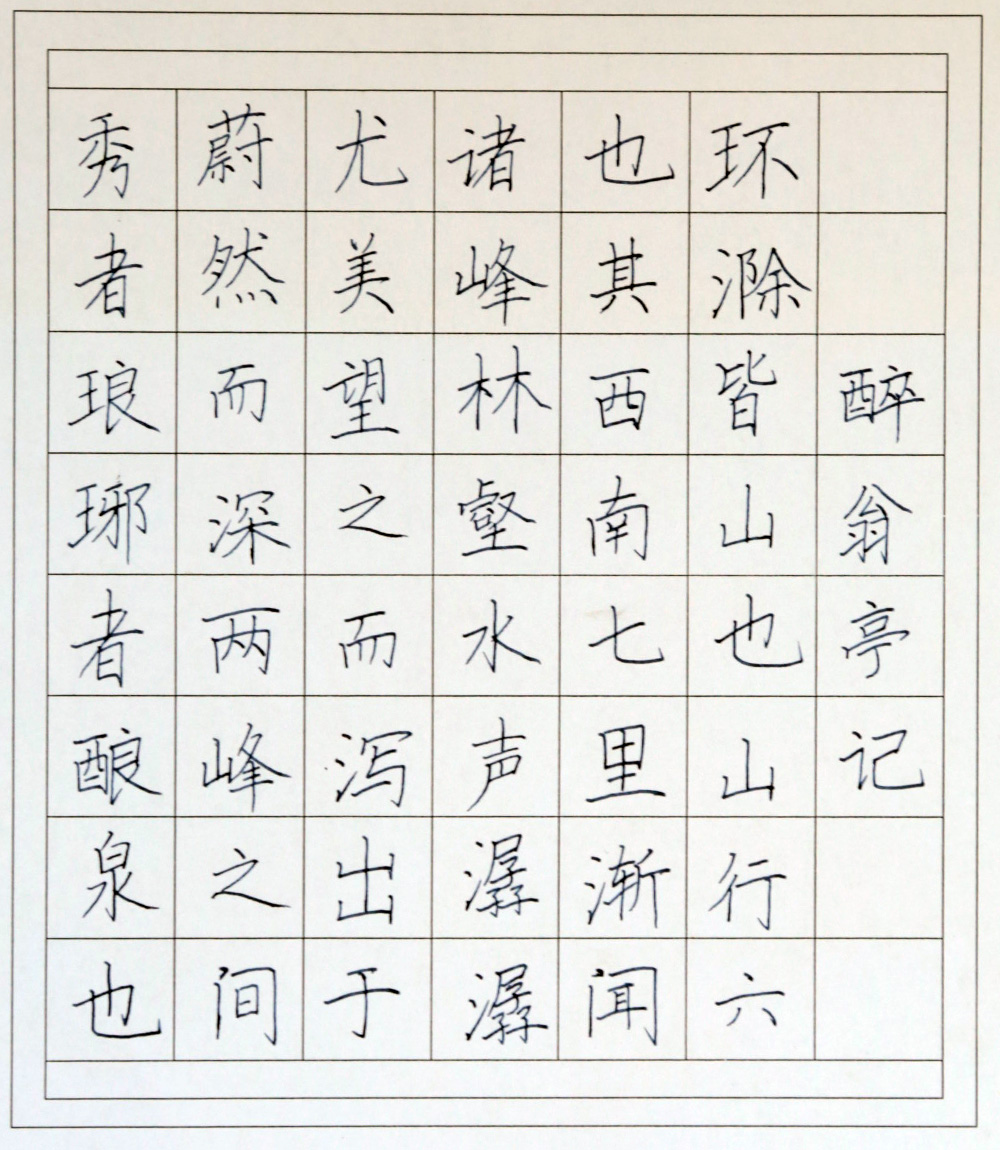 醉翁亭记
环滁皆山也山行六
也其西南七里渐闻
诸峰林壑水声潺潺
尤美望之而泻出于
蔚然而深两峰之间
秀者琅琊者酿泉也